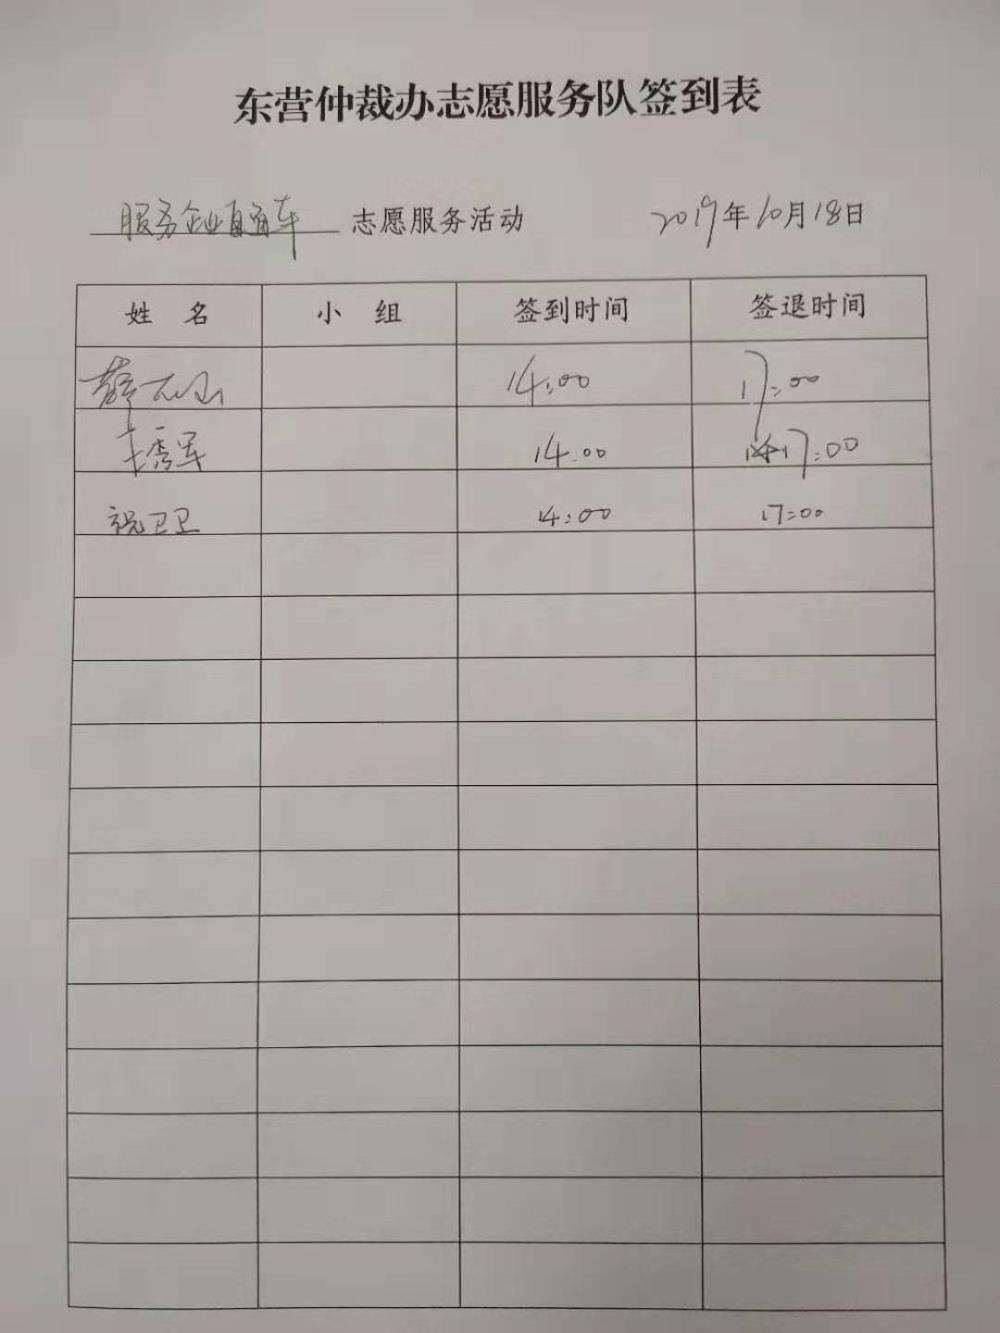 东营仲裁办志愿服务队签到表
服务企业直通车 志愿服务活动 2019年10月18日
姓 名 小 组 签到时间 签退时间
14:00 17:00
秀军 14:00 17:00
祝卫卫 14:00 17:00